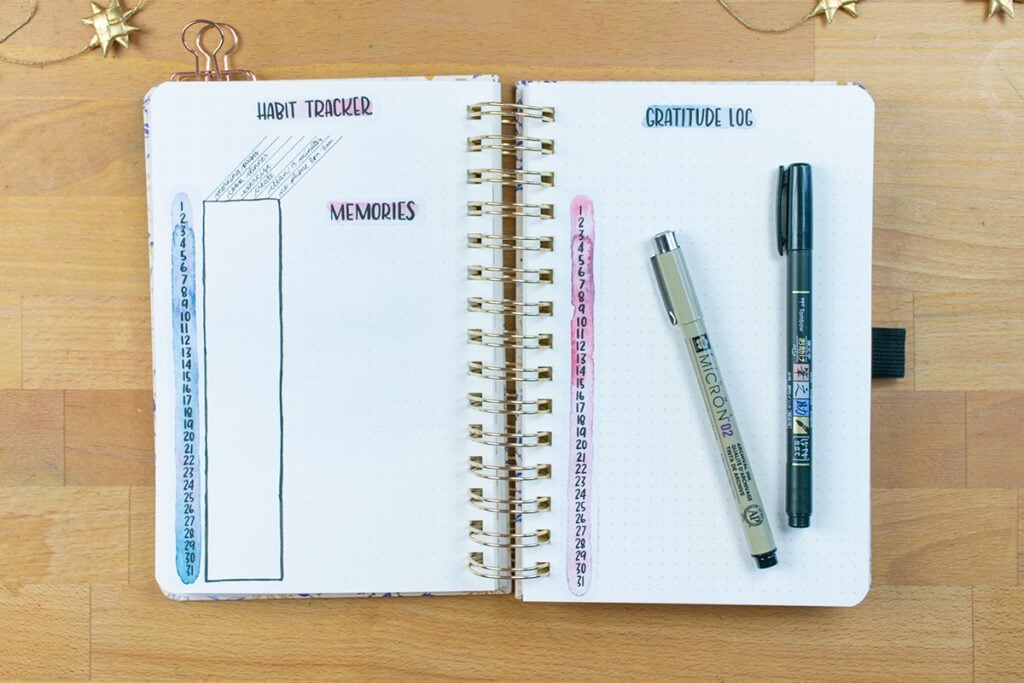 HABIT TRACKER
morning pages
cook dinner
exercise
create
clean 15 minutes
no phone 8pm - 8am
MEMORIES
1
2
3
4
5
6
7
8
9
10
11
12
13
14
15
16
17
18
19
20
21
22
23
24
25
26
27
28
29
30
31
GRATITUDE LOG
1
2
3
4
5
6
7
8
9
10
11
12
13
14
15
16
17
18
19
20
21
22
23
24
25
26
27
28
29
30
31
MICRON 02
ARCHIVAL INK
QUALITÉ D'ARCHIVAGE
AP
Tombow